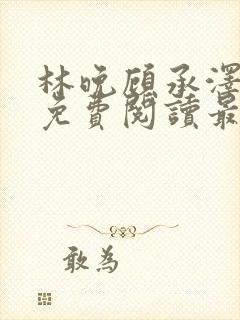 林晚顾承澤
免費閱讀最
敢為